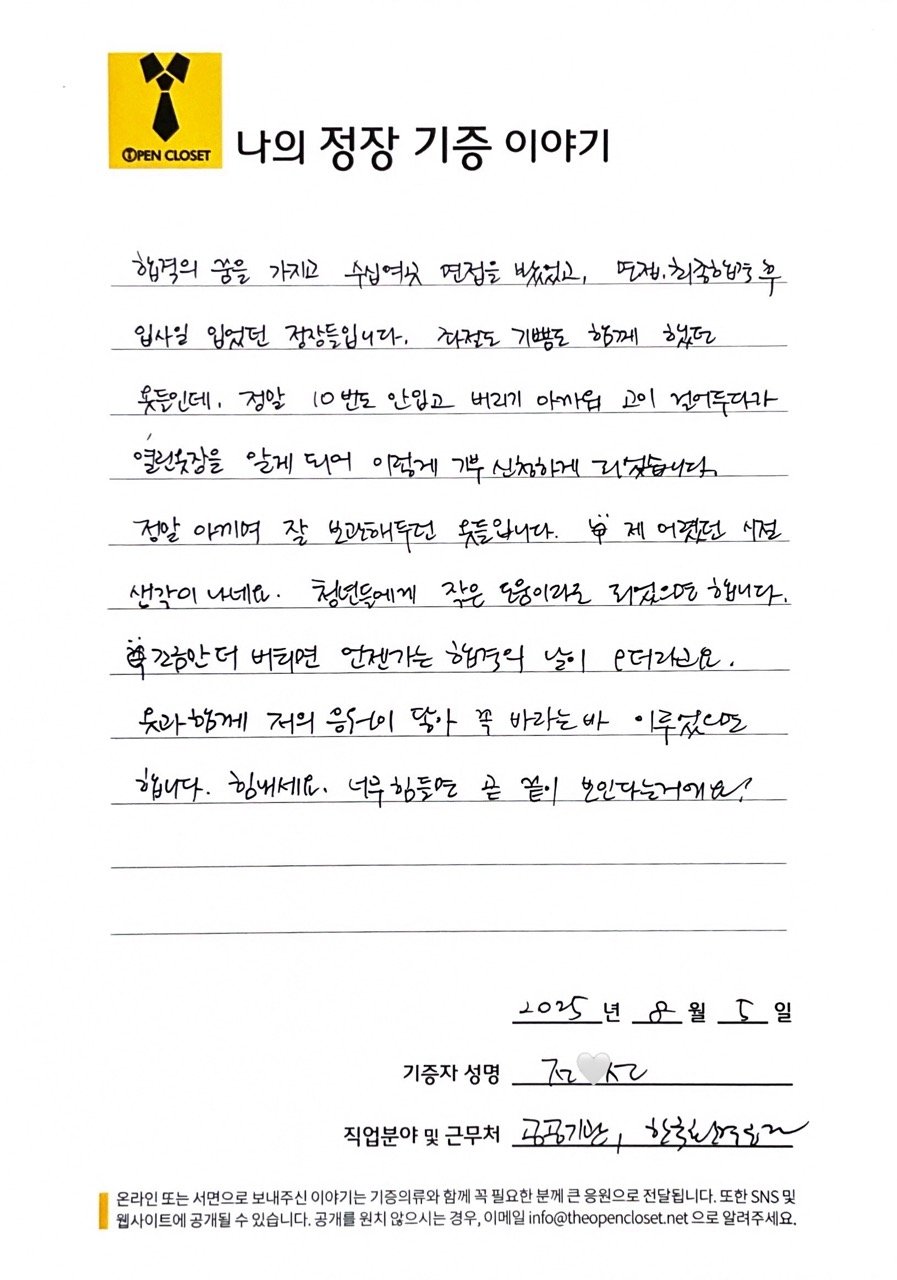 OPEN CLOSET
나의 정장 기증 이야기
합격의 꿈을 가지고 수십여곳 면접을 봤었고, 면접, 최종합격 후
입사일 입었던 정장들입니다. 좌절도 기쁨도 함께 했던
옷들인데, 정말 10번도 안입고 버리기 아까워 고이 걸어두다가
열린옷장을 알게 되어 이렇게 기부 신청하게 되었습니다.
정말 아끼며 잘 보관해두던 옷들입니다. 제 어렸던 시절
생각이 나네요. 청년들에게 작은 도움이라도 되었으면 합니다.
조금만 더 버티면 언젠가는 합격의 날이 오더라고요.
옷과 함께 저의 응원이 닿아 꼭 바라는바 이루었으면
합니다. 힘내세요. 너무 힘들면 곧 끝이 보인다는거예요!
2025 년 8 월 5 일
기증자 성명 전🤍선
직업분야 및 근무처 공공기관,
온라인 또는 서면으로 보내주신 이야기는 기증의류와 함께 꼭 필요한 분께 큰 응원으로 전달됩니다. 또한 SNS 및
웹사이트에 공개될 수 있습니다. 공개를 원치 않으시는 경우, 이메일 info@theopencloset.net 으로 알려주세요.